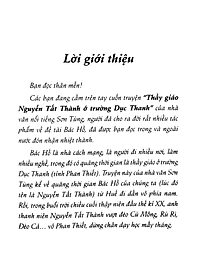 Lời giới thiệu
Bạn đọc thân mến!
Các bạn đang cầm trên tay cuốn truyện "Thầy giáo
Nguyễn Tất Thành ở trường Dục Thanh" của nhà
văn nổi tiếng Sơn Tùng, người đã cho ra đời rất nhiều tác
phẩm về đề tài Bác Hồ, đã được bạn đọc trong và ngoài
nước đón nhận nhiệt thành.
Bác Hồ là nhà cách mạng, là người đi nhiều nơi, làm
nhiều nghề, trong đó có quãng thời gian là thầy giáo ở trường
Dục Thanh (tỉnh Phan Thiết). Truyện này của nhà văn Sơn
Tùng kể về quãng thời gian Bác Hồ của chúng ta (lúc đó
tên là Nguyễn Tất Thành) từ Huế đi dần về phía nam.
Rồi, trong buổi trời chiều thập niên đầu thế kỉ XX, anh
thanh niên Nguyễn Tất Thành vượt đèo Cù Mông, Rù Rì,
Đèo Cả... vô Phan Thiết, dừng chân dạy học mấy tháng.